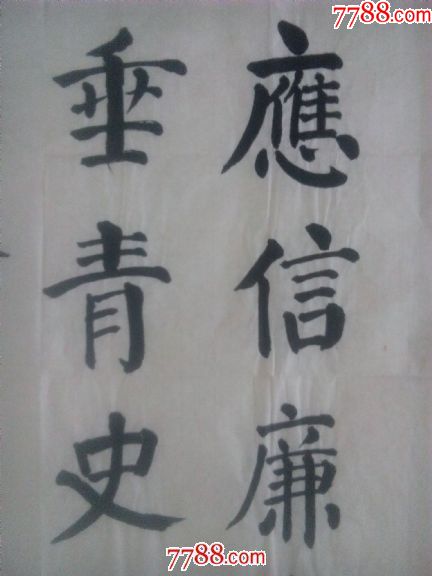 7788.com
應信廉
垂青史
7788.com